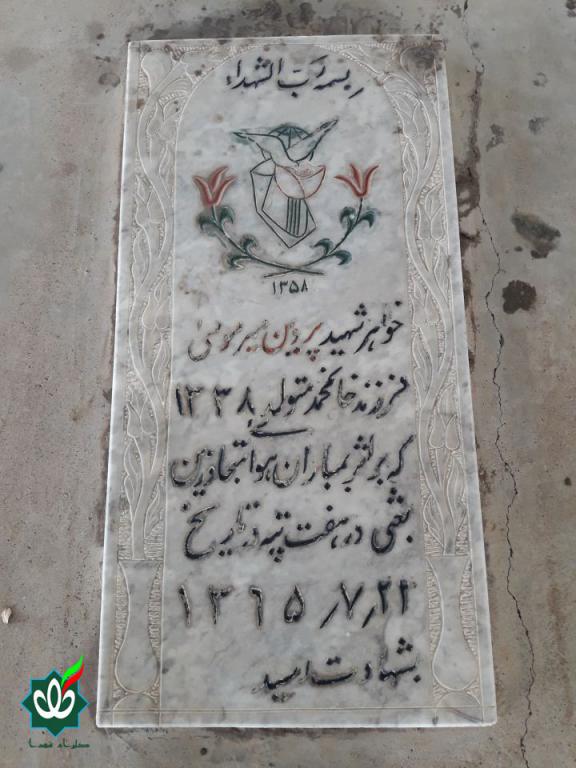 بسمه رب الشهداء
۱۳۵۸
خواهر شهید پروین میرموسی
فرزند خانمحمد متولد ۱۳۳۸
که بر اثر بمباران هوایی متجاوزین
بعثی در هفت تپه در تاریخ
۱۳۶۵٫۷٫۲۲
بشهادت رسید